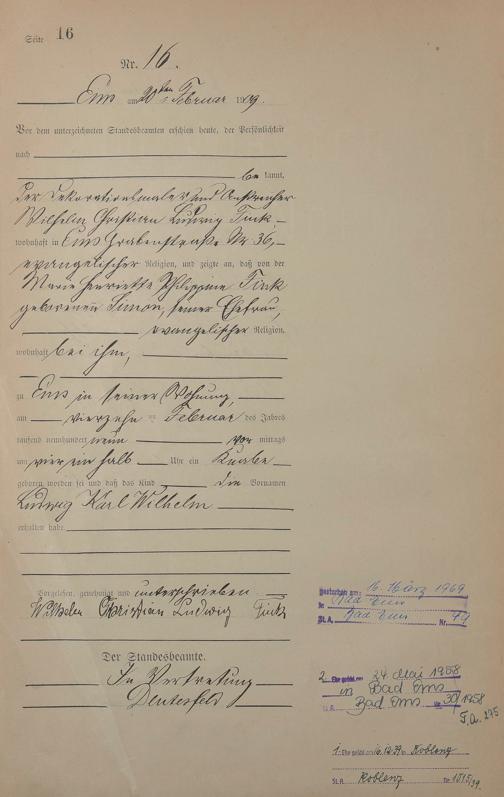 Seite 16
Nr. 16.
Ems am 20ten Februar 1909.
Vor dem unterzeichneten Standesbeamten erschien heute, der Persönlichkeit
nach
be kannt,
der Dekorationsmaler und Anstreicher
Wilhelm Christian Ludwig Fink
wohnhaft in Ems Grabenstraße Nr 36,
evangelischer Religion, und zeigte an, daß von der
Marie Henriette Philippine Fink
geborenen Simon, seiner Ehefrau,
evangelischer Religion,
wohnhaft bei ihm,
zu Ems in seiner Wohnung,
am vierzehn ten Februar des Jahres
tausend neunhundert neun vor mittags
um vier ein halb Uhr ein Knabe
geboren worden sei und daß das Kind die Vornamen
Ludwig Karl Wilhelm
erhalten habe.
Vorgelesen, genehmigt und unterschrieben
Wilhelm Christian Ludwig Fink
Der Standesbeamte.
In Vertretung
Gestorben am: 16. März 1969
in Bad Ems
St. A. Bad Ems Nr. 79
2. Ehe geschl. am 24. Mai 1958
in Bad Ems
St.A. Bad Ems Nr. 30/1958
F.A. 275
1. Ehe geschl. am 16.12.39 in Koblenz
St.A. Koblenz Nr 1515/39.